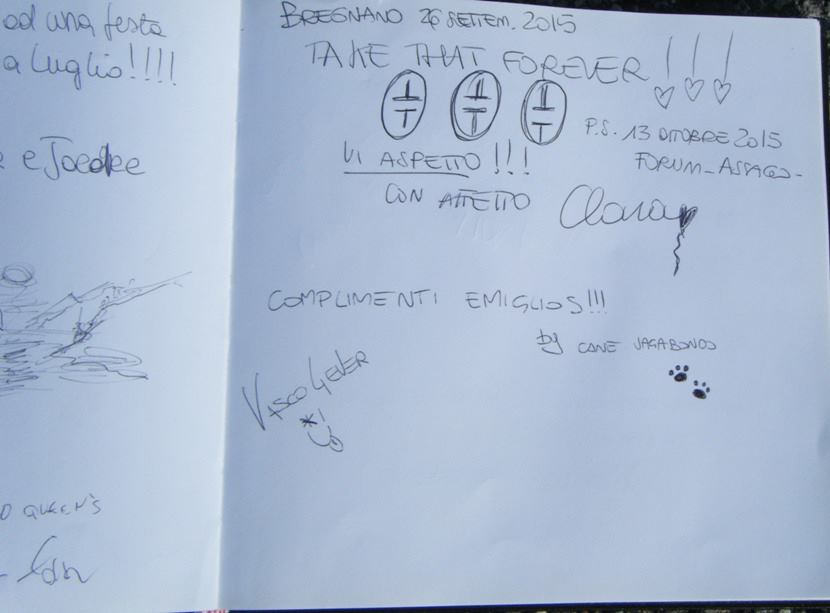 ed una festa
a Luglio!!!!
e Joedee
QUEEN'S
BREGNANO 26 SETTEM. 2015
TAKE THAT FOREVER!!!
P.S. 13 OTTOBRE 2015
FORUM-ASSAGO-
VI ASPETTO!!!
CON AFFETTO Clara
COMPLIMENTI EMIGLIOS!!!
by CANE VAGABONDO
VASCO 4EVER